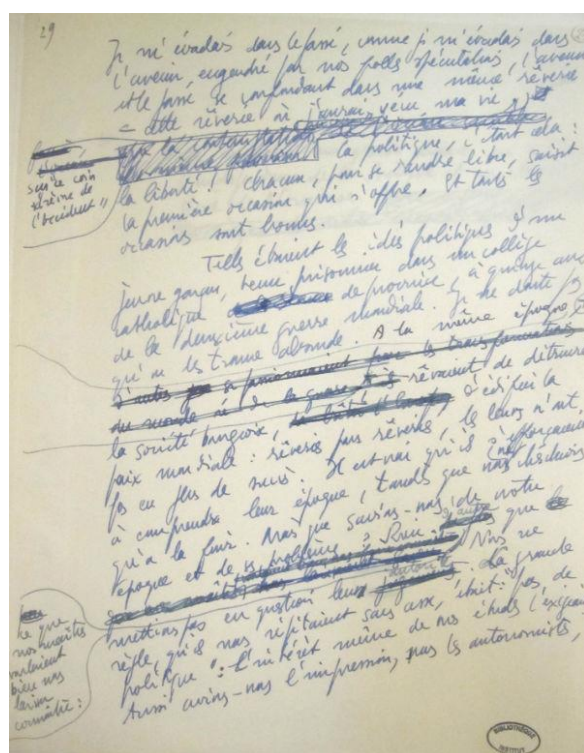 29
Je m'évadais dans le passé, comme je m'évadais dans
l'avenir, engendré par nos folles spéculations, l'avenir
et le passé se confondant dans une même rêverie
cette rêverie où j'aurai vécu ma vie
la politique, c'était cela :
sur le coin
de
l'Occident"
la liberté ! Chacun, pour se rendre libre, saisit
la première occasion qui s'offre. Et toutes les
occasions sont bonnes.
Telles étaient les idées politiques d'un
jeune garçon, prisonnier dans un collège
catholique de province, à quinze ans
de la deuxième guerre mondiale. Je ne doute pas
qu'on les trouve absurdes. A la même époque,
d'autres se passionnaient pour les transformations
du monde né de la guerre rêvaient de détruire
la société bourgeoise, d'édifier la
paix mondiale : rêveries pour rêveries, les leurs n'ont
pas eu plus de succès. Il est vrai qu'ils s'efforçaient
à comprendre leur époque, tandis que nous
qu'à la fuir. Mais que savions-nous de notre
époque et de ses problèmes ? Rien que
ce que
nos maîtres
voulaient
bien nous
laisser
connaître :
Nous ne
mettions pas en question leur autorité. La grande
règle, qu'ils nous répétaient sans cesse, était : "pas de
politique". L'intérêt même de nos études l'exigeait
Aussi avions-nous l'impression, nous les autonomistes,
BIBLIOTHÈQUE